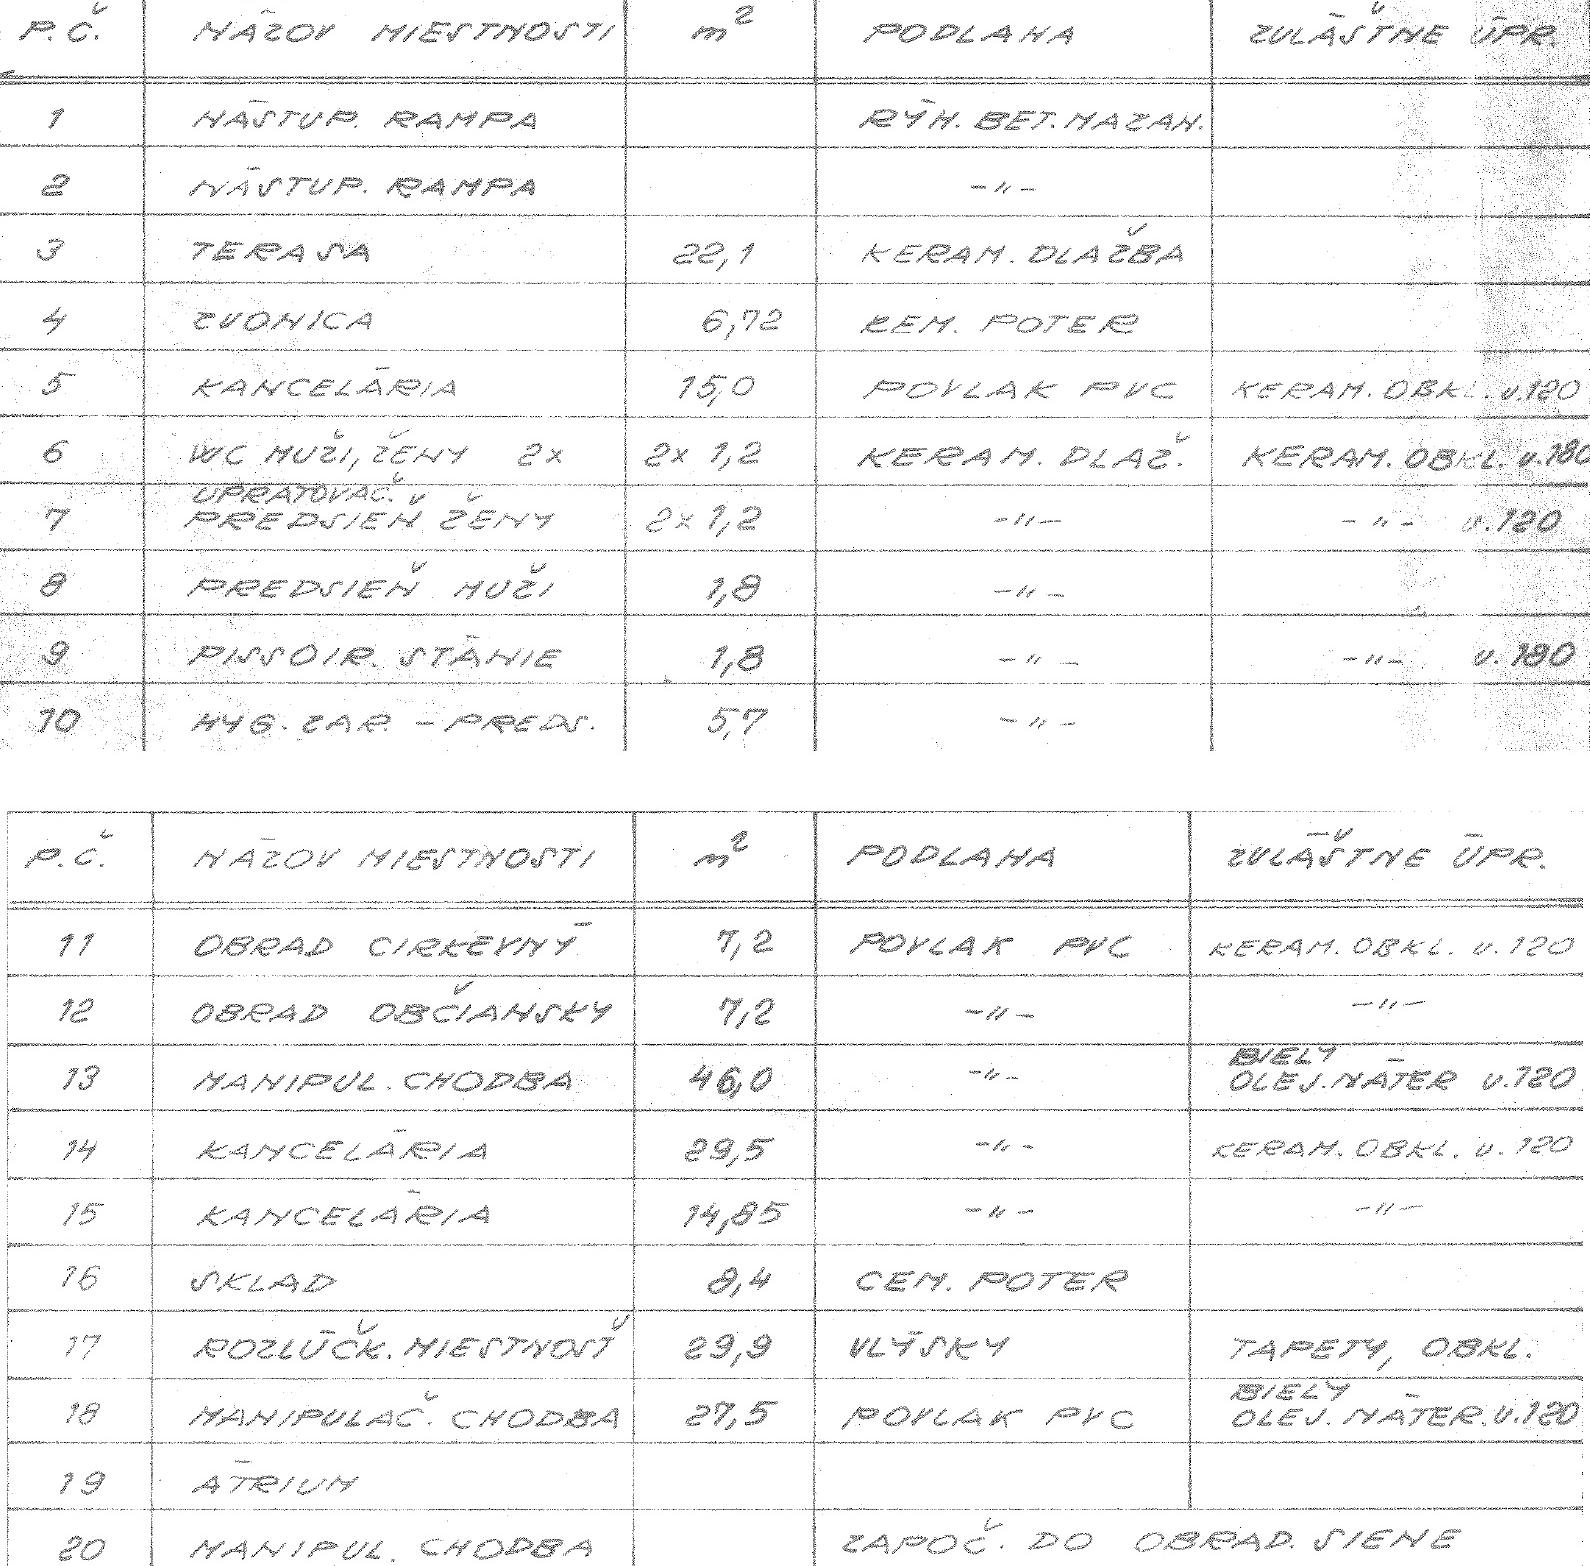 P.Č. NÁZOV MIESTNOSTI m² PODLAHA ZVLÁŠTNE ÚPR.
1 NÁSTUP. RAMPA RÝH. BET. MAZAN.
2 NÁSTUP. RAMPA -〃-
3 TERASA 22,1 KERAM. DLAŽBA
4 ZVONICA 6,72 CEM. POTER
5 KANCELÁRIA 15,0 POVLAK PVC KERAM. OBKL. v.120
6 WC MUŽI, ŽENY 2x 2x 1,2 KERAM. DLAŽ. KERAM. OBKL. v.180
UPRATOVAČ.
7 PREDSIEŇ ŽENY 2x 1,2 -〃- -〃- v.120
8 PREDSIEŇ MUŽI 1,8 -〃-
9 PISSOIR. STÁNIE 1,8 -〃- -〃- v.180
10 HYG. ZAR. - PREDS. 5,7 -〃-
P.Č. NÁZOV MIESTNOSTI m² PODLAHA ZVLÁŠTNE ÚPR.
11 OBRAD CIRKEVNÝ 7,2 POVLAK PVC KERAM. OBKL. v.120
12 OBRAD OBČIANSKY 7,2 -〃- -〃-
BIELY
13 MANIPUL. CHODBA 46,0 -〃- OLEJ. NÁTER v.120
14 KANCELÁRIA 29,5 -〃- KERAM. OBKL. v.120
15 KANCELÁRIA 14,85 -〃- -〃-
16 SKLAD 8,4 CEM. POTER
17 ROZLÚČK. MIESTNOSŤ 29,9 VLÝSKY TAPETY, OBKL.
BIELY
18 MANIPULAČ. CHODBA 27,5 POVLAK PVC OLEJ. NÁTER. v.120
19 ÁTRIUM
20 MANIPUL. CHODBA ZAPOČ. DO OBRAD. SIENE